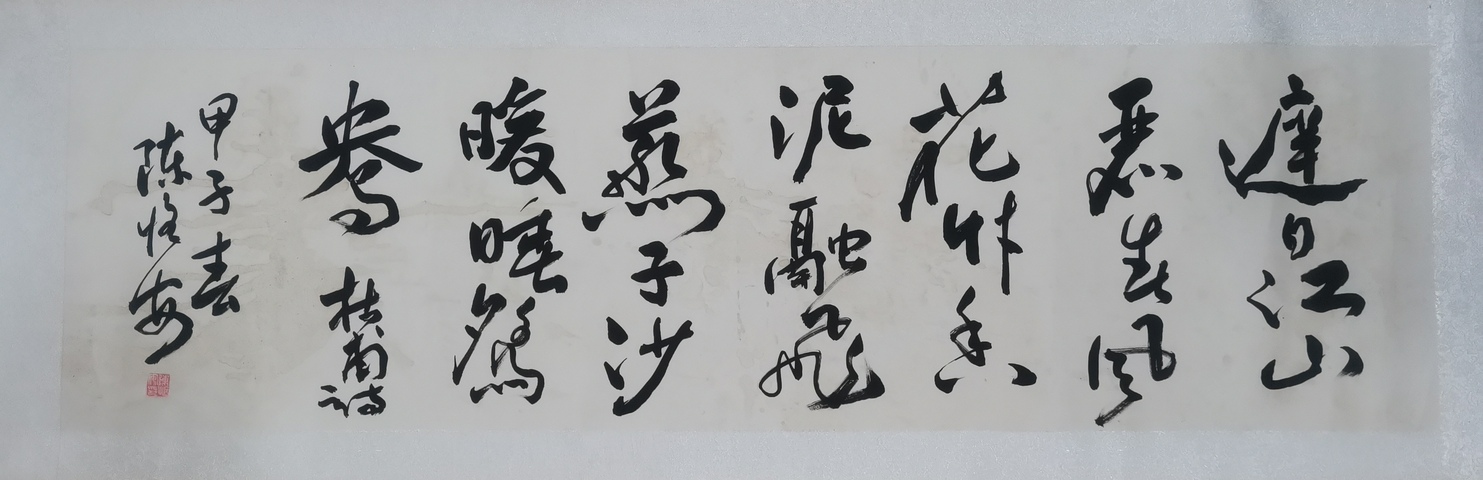 遲日江山
麗春風
花艸香
泥融飛
燕子沙
暖睡鴛
鴦 杜甫詩
甲子春
陳